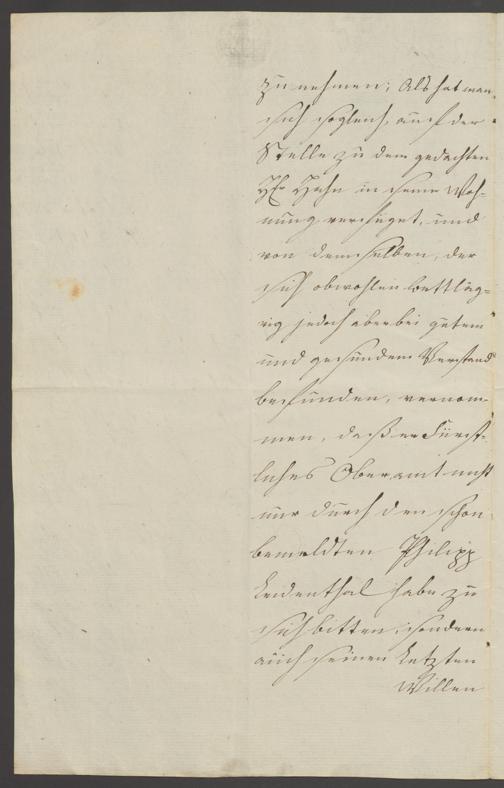 zu nehmen; Als hat man
sich sogleich, auf der
Stelle zu dem gedachten
Hr Hahn in seine Woh=
nung verfüget, und
von demselben, der
sich obwohlen bettläg=
rig jedoch aber bei gutem
und gesundem Verstand
befunden, vernom=
men, daß er Fürst=
liches Oberamt nicht
nur durch den schon
bemeldten Philipp
Leidenthal habe zu
sich bitten, sondern
auch seinen Letzten
Willen